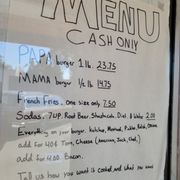 MENU
CASH ONLY
PAPA burger 1 lb. 23.75
MAMA burger 1/2 lb. 14.75
French Fries. one size only 7.50
Sodas. 7UP, Root Beer, Shasta, Diet, & Water 2.00
Everything on your burger, Ketchup, Mustard, Pickles, Relish, Onions
add for 40¢ Tom, Cheese (American, Jack, Ched.)
add for 4.00 Bacon.
Tell us how you want it cooked and what you want